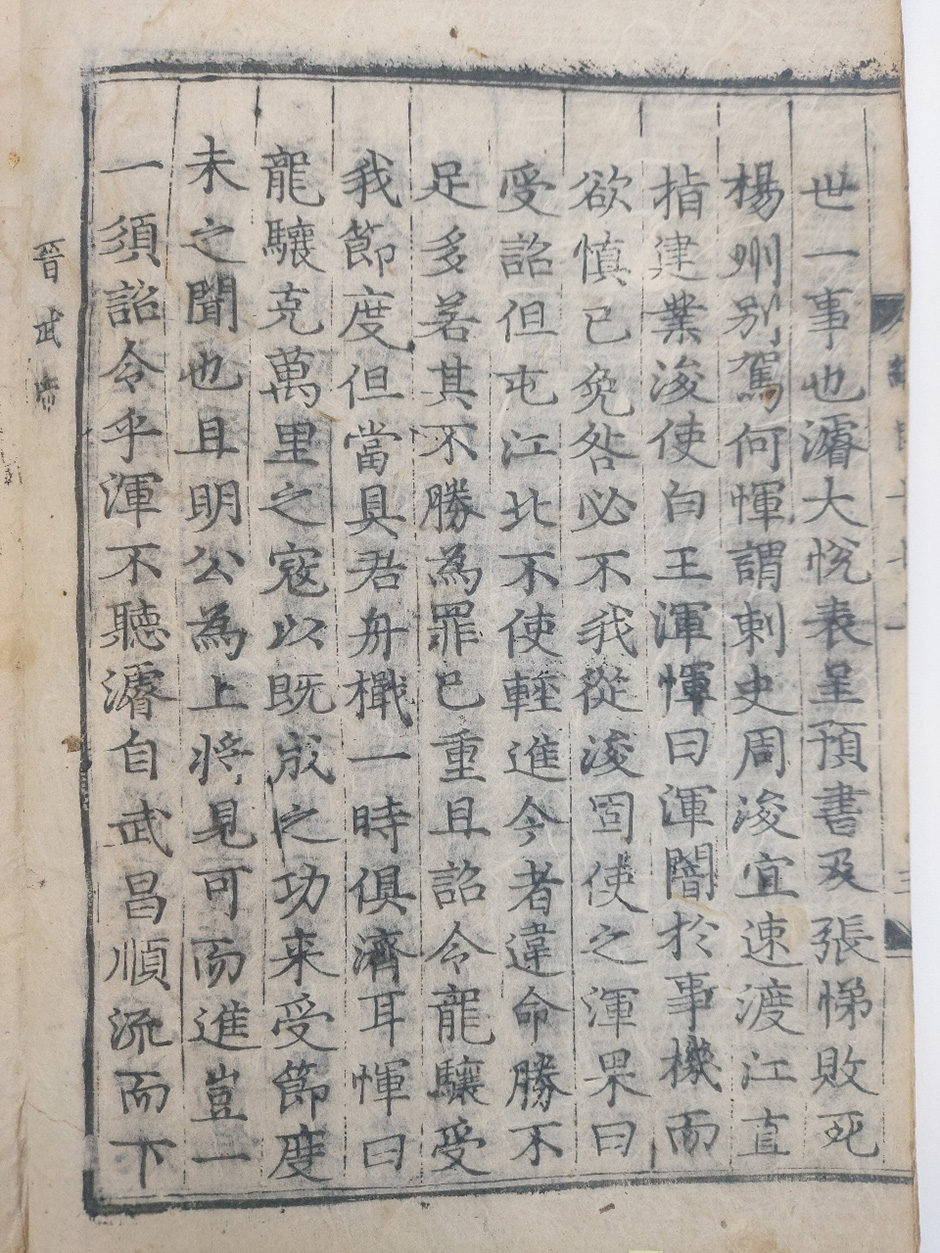 世一事也濬大悅表呈預書及張悌敗死
楊州別駕何惲謂刺史周浚宜速渡江直
指建業浚使白王渾惲曰渾闇於事機而
欲慎已免咎必不我從浚固使之渾果曰
受詔但屯江北不使輕進今者違命勝不
足多若其不勝為罪已重且詔令龍驤受
我節度但當具君舟檝一時俱濟耳惲曰
龍驤克萬里之寇以既成之功来受節度
未之聞也且明公為上將見可而進豈一
一須詔令乎渾不聽濬自武昌順流而下
晉武帝